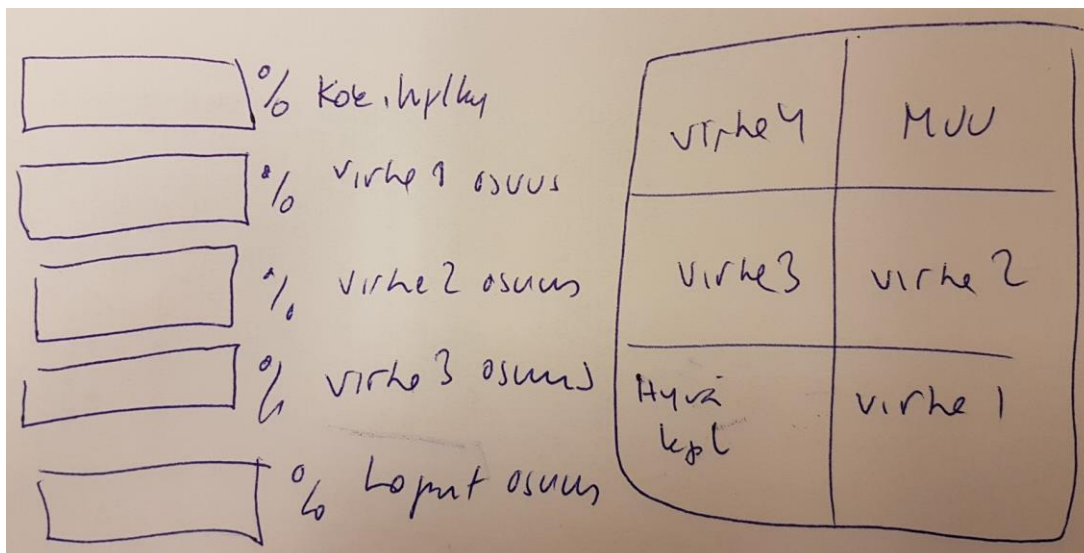 % Kok. hylky
% virhe 1 osuus
% virhe 2 osuus
% virhe 3 osuus
% Loput osuus
virhe 4
MUU
virhe 3
virhe 2
Hyvä
kpl
virhe 1